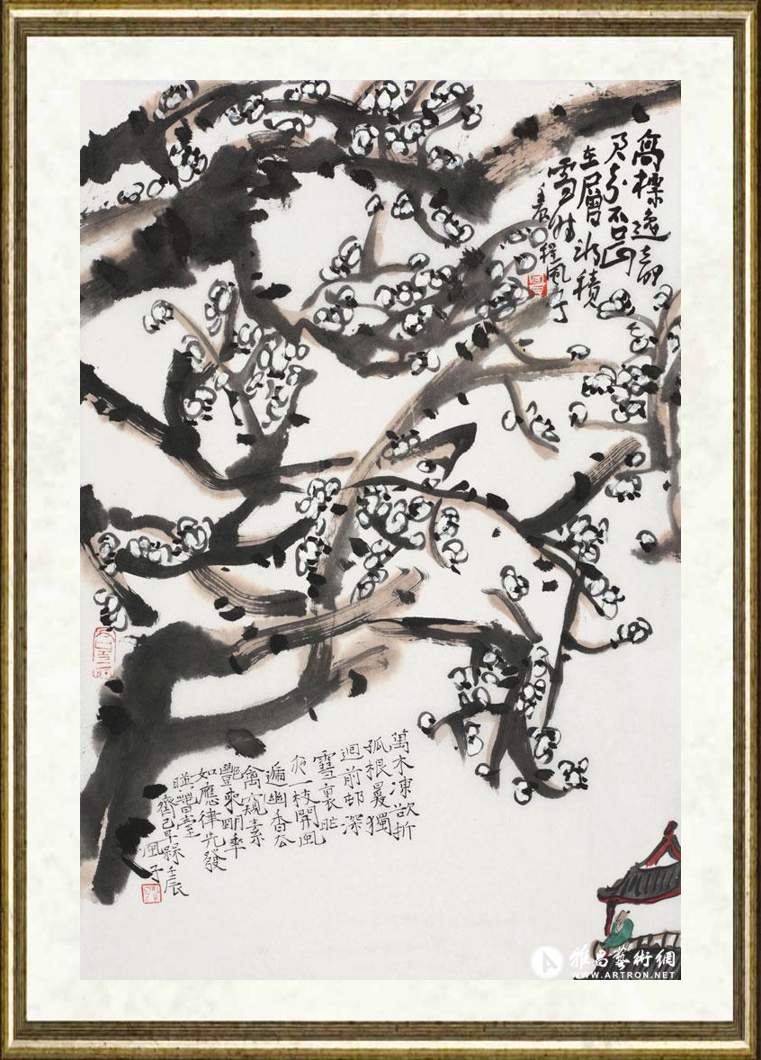 高標逸韻
君知否正
在層冰積
雪時
壬辰程風子
萬木凍欲折
孤根暖獨
迴前邨深
雪裏昨
夜一枝開風
遞幽香去
禽窺素
艷來明年
如應律先發
映春臺
齊己早梅壬辰
風子
雅昌藝術網
WWW.ARTRON.NET